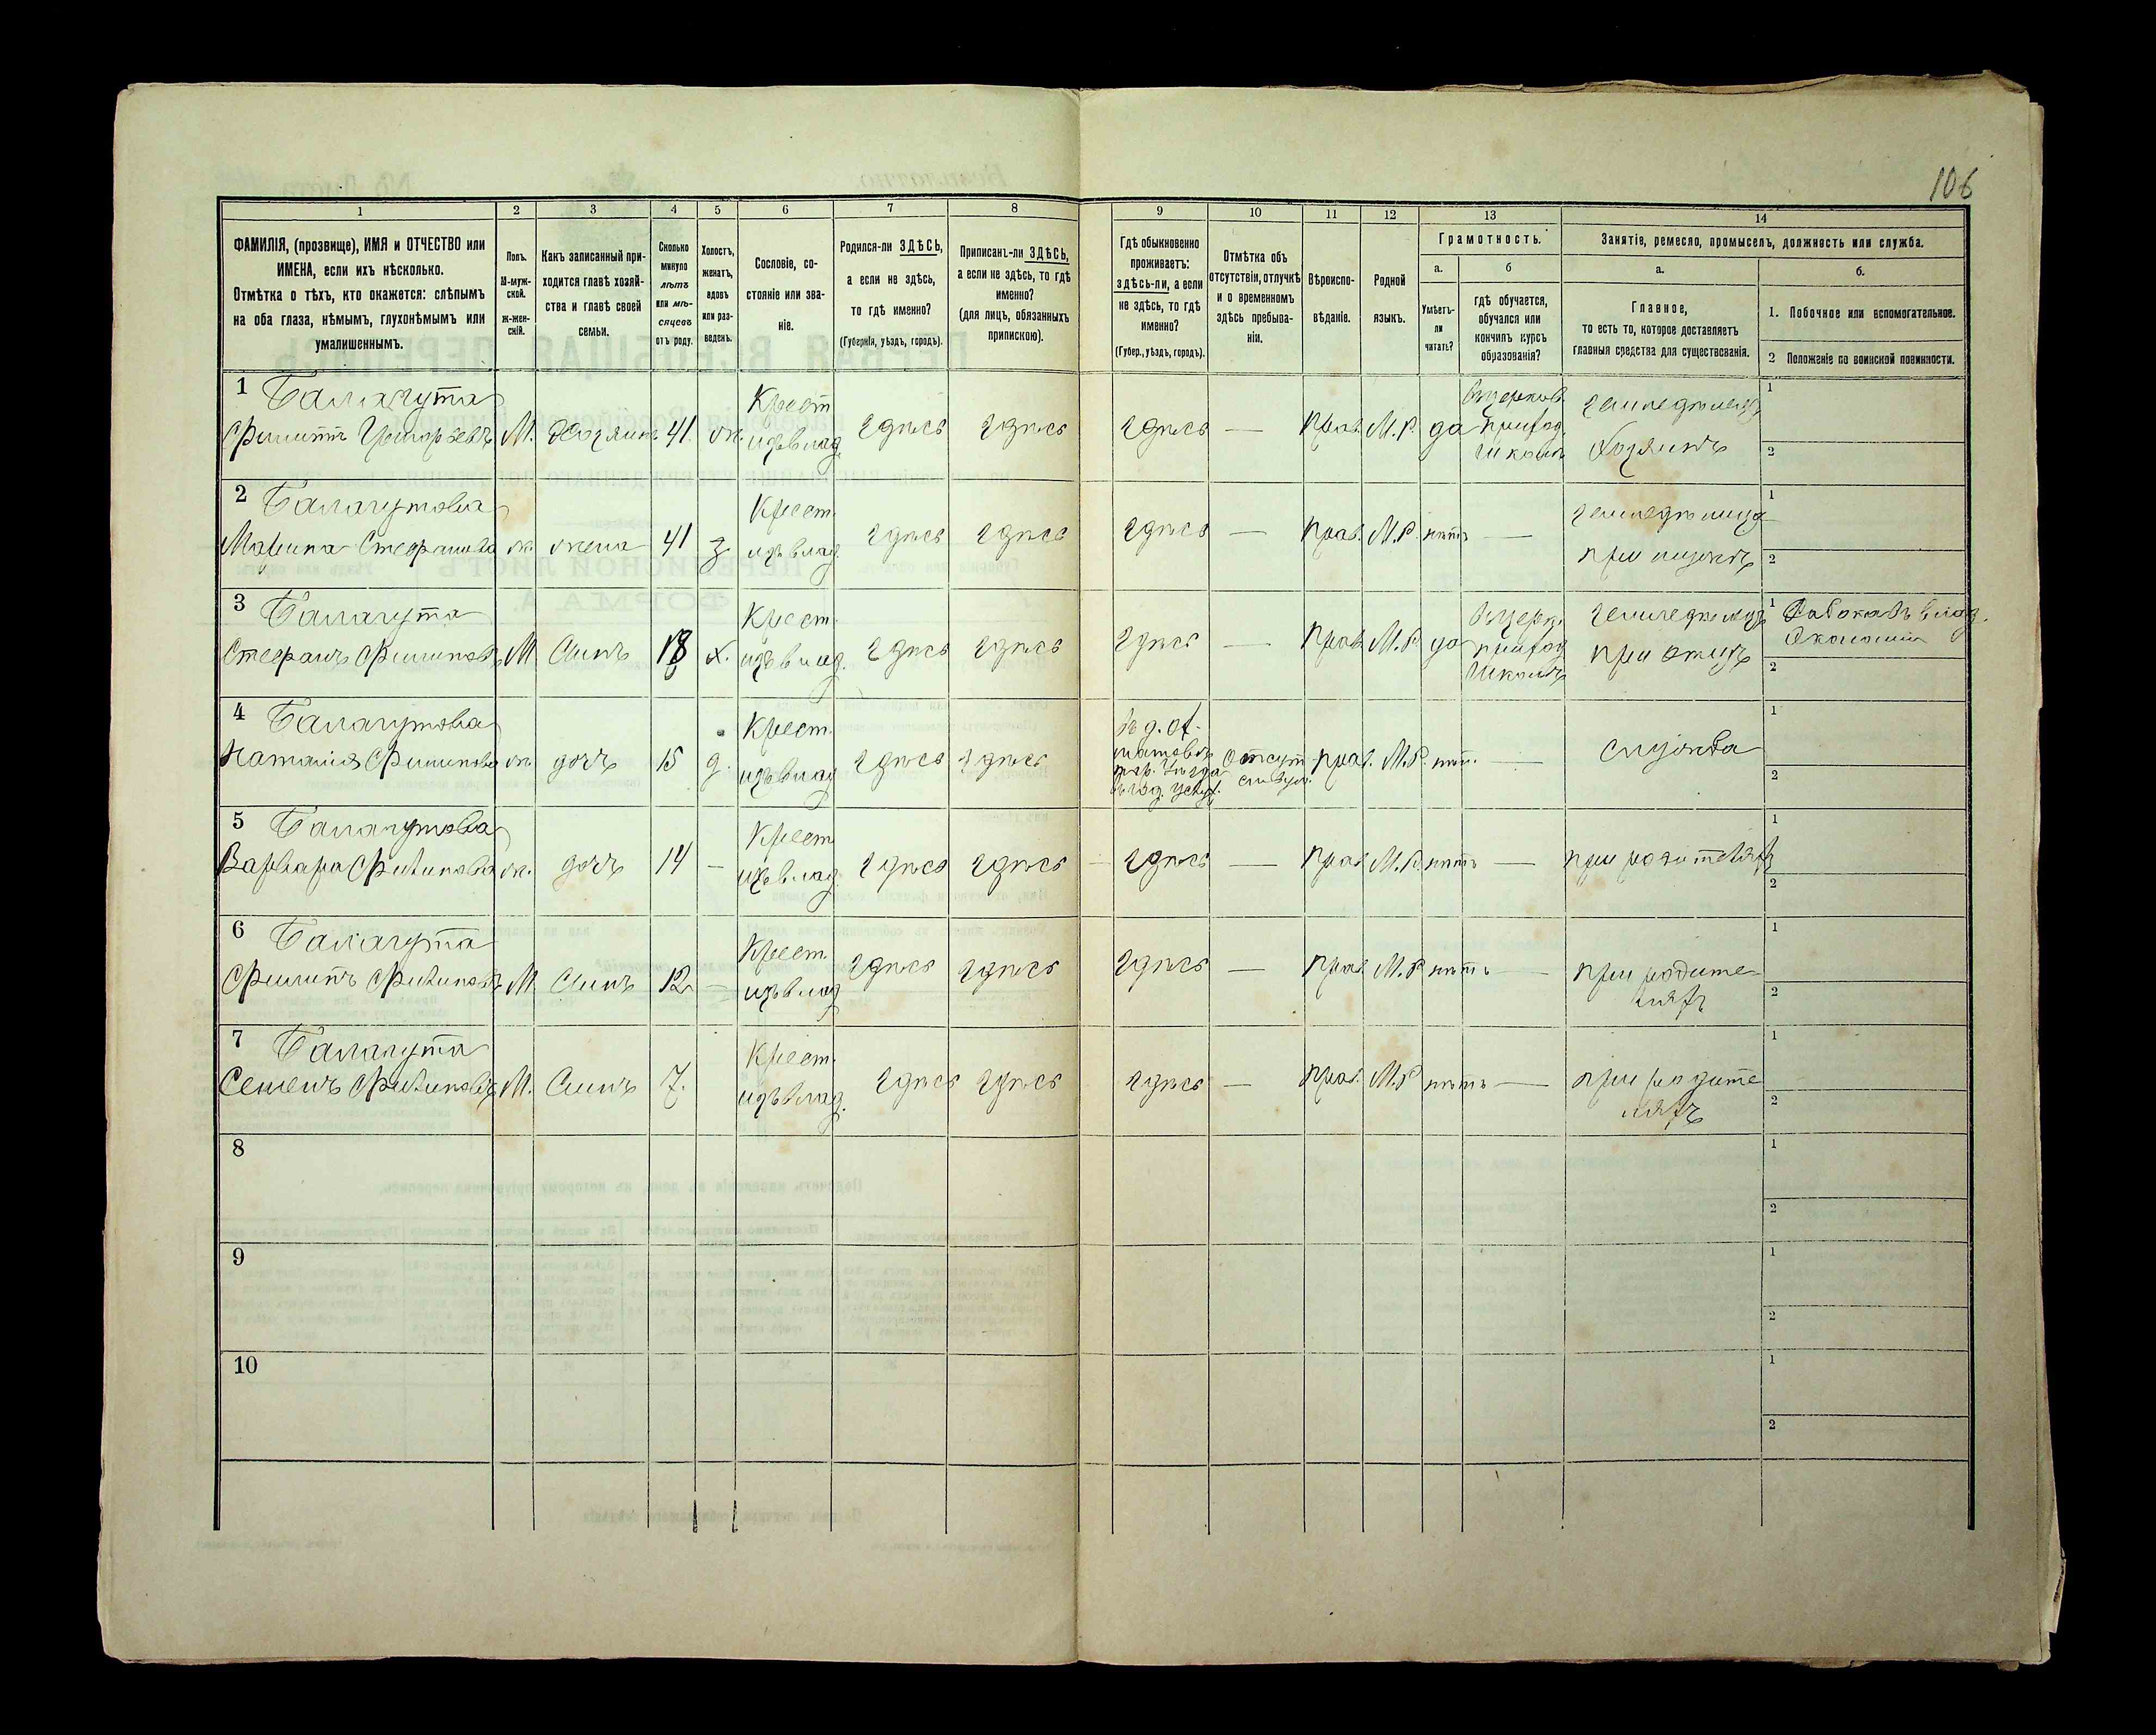 106
1 2 3 4 5 6 7 8 9 10 11 12 13 14
ФАМИЛІЯ, (прозвище), ИМЯ и ОТЧЕСТВО или
ИМЕНА, если ихъ нѣсколько.
Отмѣтка о тѣхъ, кто окажется: слѣпымъ
на оба глаза, нѣмымъ, глухонѣмымъ или
умалишеннымъ.
Полъ.
М-муж-
ской.
ж-жен-
скій.
Какъ записанный при-
ходится главѣ хозяй-
ства и главѣ своей
семьи.
Сколько
минуло
лѣтъ
или мѣ-
сяцевъ
отъ роду.
Холостъ,
женатъ,
вдовъ
или раз-
веденъ.
Сословіе, со-
стояніе или зва-
ніе.
Родился-ли ЗДѢСЬ,
а если не здѣсь,
то гдѣ именно?
(Губернія, уѣздъ, городъ).
Приписанъ-ли ЗДѢСЬ,
а если не здѣсь, то гдѣ
именно?
(для лицъ, обязанныхъ
припискою).
Гдѣ обыкновенно
проживаетъ:
здѣсь-ли, а если
не здѣсь, то гдѣ
именно?
(Губер., уѣздъ, городъ).
Отмѣтка объ
отсутствіи, отлучкѣ
и о временномъ
здѣсь пребыва-
ніи.
Вѣроиспо-
вѣданіе.
Родной
языкъ.
Грамотность.
а.
Умѣетъ-
ли
читать?
б
гдѣ обучается,
обучался или
кончилъ курсъ
образованія?
Занятіе, ремесло, промыселъ, должность или служба.
а.
Главное,
то есть то, которое доставляетъ
главныя средства для существованія.
б.
1. Побочное или вспомогательное.
2 Положеніе по воинской повинности.
1 Балагута Крест Въ церков. земледѣлецъ 1
Филиппъ Григорьевъ М. Хозяинъ 41 ж. изъ влад. здѣсь здѣсь здѣсь — Прав. М.Р. да приход. Хозяинъ 2
школѣ
2 Балагутова Крест. земледѣлица 1
Марина Стефанова ж. жена 41 з изъ влад. здѣсь здѣсь здѣсь — Прав. М.Р. нѣтъ — при мужѣ 2
3 Балагута Крест. Въ церк. земледѣлецъ 1 Работаетъ в влад.
Стефанъ Филиповъ М Сынъ 18 х. изъ влад. здѣсь здѣсь здѣсь — Прав. М.Р. да приход при отцѣ Экономіи
школѣ 2
4 Балагутова Крест. 1
Наталія Филипова ж. дочь 15 д. изъ влад здѣсь здѣсь Отсут прав. М.Р. нѣт. — служба
2
5 Балагутова Крест 1
Варвара Филипова ж. дочь 14 — изъ влад. здѣсь здѣсь — здѣсь — Прав М.Р. нѣтъ — при родителяхъ
2
6 Балагута Крест 1
Филипъ Филиповъ М. Сынъ 12 — изъ влад здѣсь здѣсь здѣсь — прав М.Р нѣтъ — при родите-
ляхъ 2
7 Балагута Крест. 1
Семенъ Филиповъ М. Сынъ 7. изъ влад. здѣсь здѣсь здѣсь — прав. М.Р нѣтъ — при родите
ляхъ 2
8 1
2
9 1
2
10 1
2